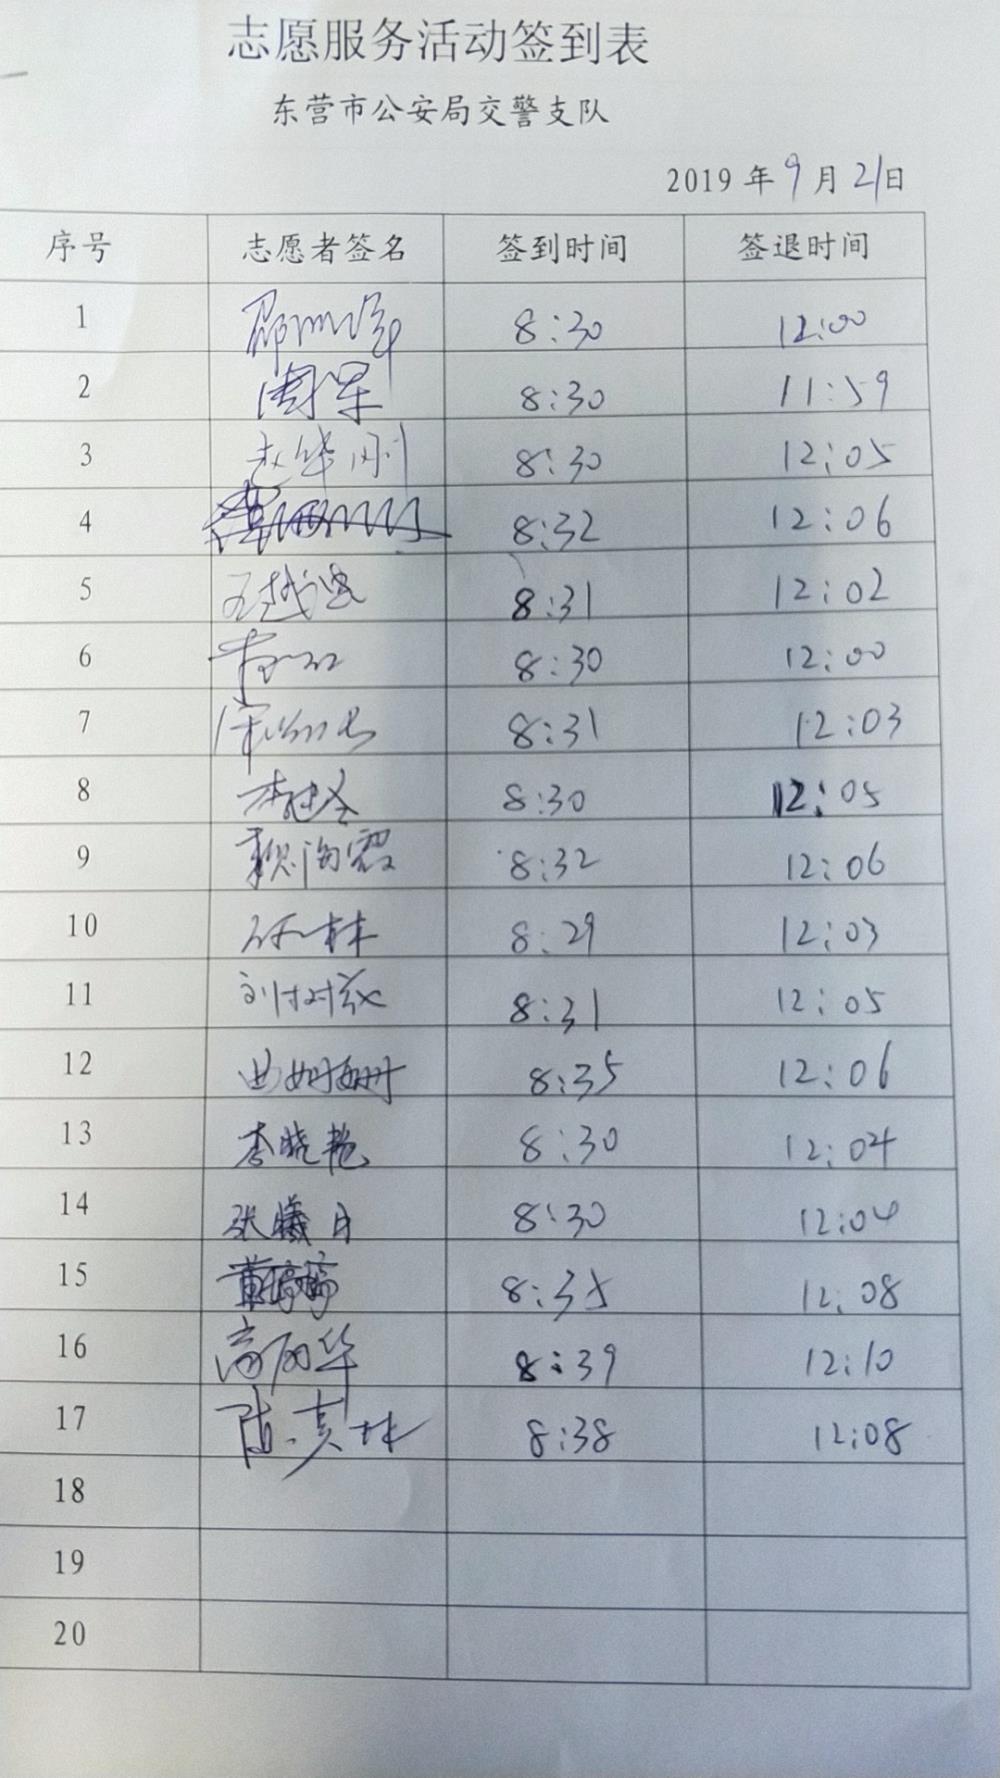 志愿服务活动签到表
东营市公安局交警支队
2019 年 9 月 21 日
序号 志愿者签名 签到时间 签退时间
1 8:30 12:00
2 周军 8:30 11:59
3 赵华刚 8:30 12:05
4 8:32 12:06
5 8:31 12:02
6 8:30 12:00
7 8:31 12:03
8 8:30 12:05
9 8:32 12:06
10 8:29 12:03
11 8:31 12:05
12 曲姗姗 8:35 12:06
13 李晓艳 8:30 12:04
14 张曦月 8:30 12:04
15 董婷婷 8:35 12:08
16 高丽华 8:39 12:10
17 8:38 12:08
18
19
20